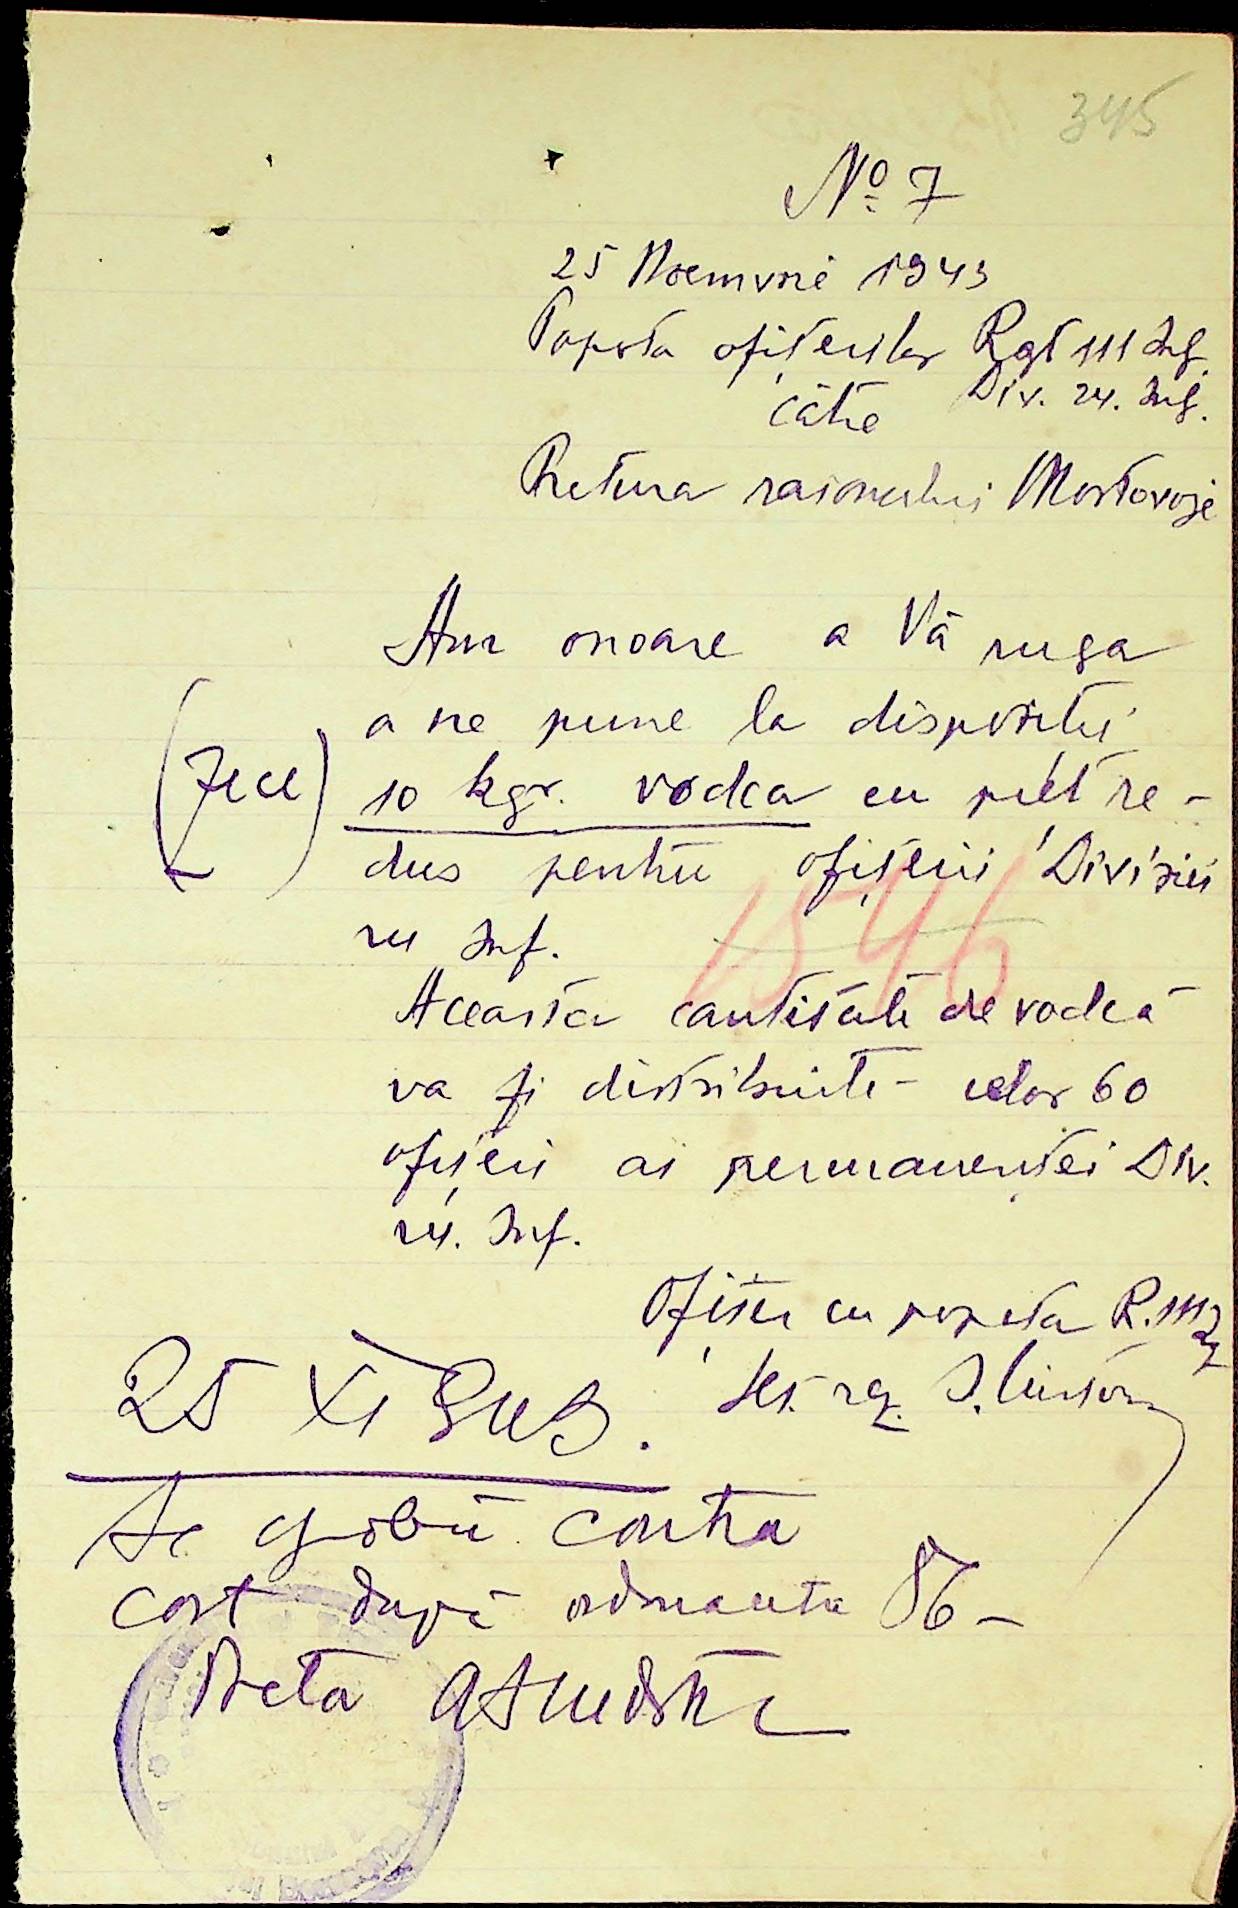 345
Nº 7
25 Noemvrie 1943
Popota ofițerilor Rgt 111 Inf.
Div. 24. Inf.
către
Pretura raionului Mostovoje
Am onoare a Vă ruga
a ne pune la dispoziție
(zece) 10 kgr. vodca cu preț re-
dus pentru ofițerii Diviziei
24 Inf.
1546
Aceasta cantitate de vodcă
va fi distribuită celor 60
ofițeri ai permanenței Div.
24. Inf.
Ofițer cu popota R. 111 In
25 XI
Se aprobă contra
cost după ordonanta 86-